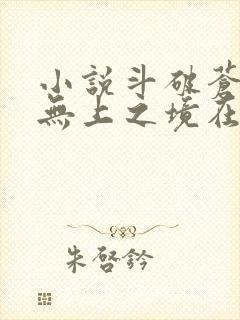 小說斗破蒼
無上之境在
朱啓鈐